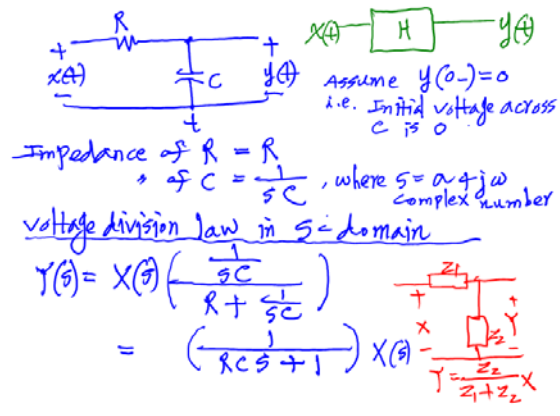 R
x(t) H y(t)
+ +
x(t) C y(t)
- -
Assume y(0-)=0
i.e. Initial voltage across
C is 0
Impedance of R = R
" of C = 1/sC , where s = a + jω
complex number
Voltage division law in s-domain
Y(s) = X(s) ( (1/sC) / (R + 1/sC) )
= ( 1 / (RCs + 1) ) X(s)
Z1
+ +
X Z2 Y
- -
Y = Z2 / (Z1 + Z2) X